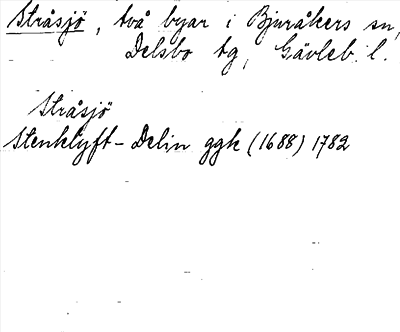 Stråsjö, två byar i Bjuråkers sn,
Delsbo tg, Gävleb. l.
Stråsjö
Stenklyft - Delin ggk (1688) 1782